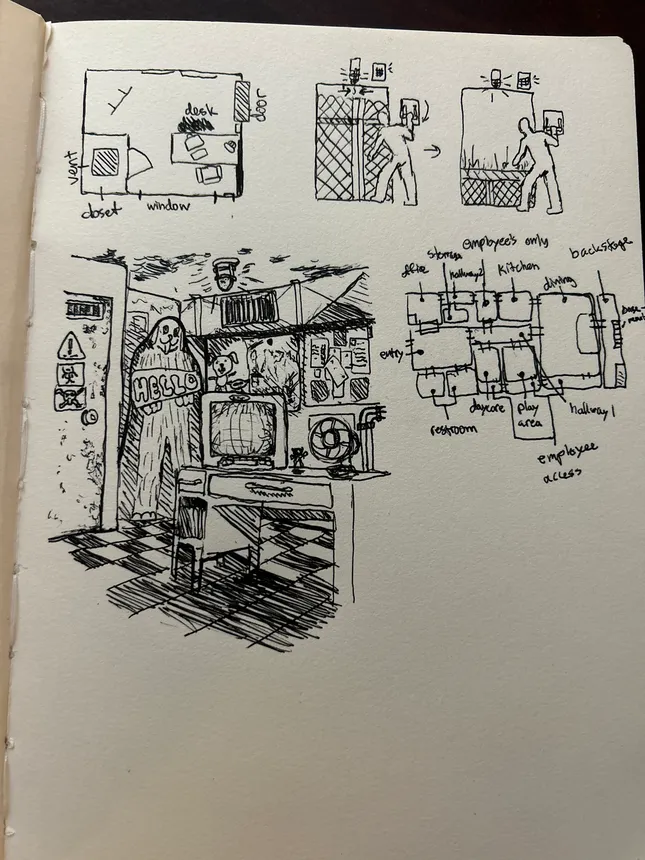 desk
door
vent
closet
window
employee's only
storage
hallway2
Kitchen
backstage
office
dining
entry
HELLO
restroom
daycare
play
area
hallway 1
employee
access